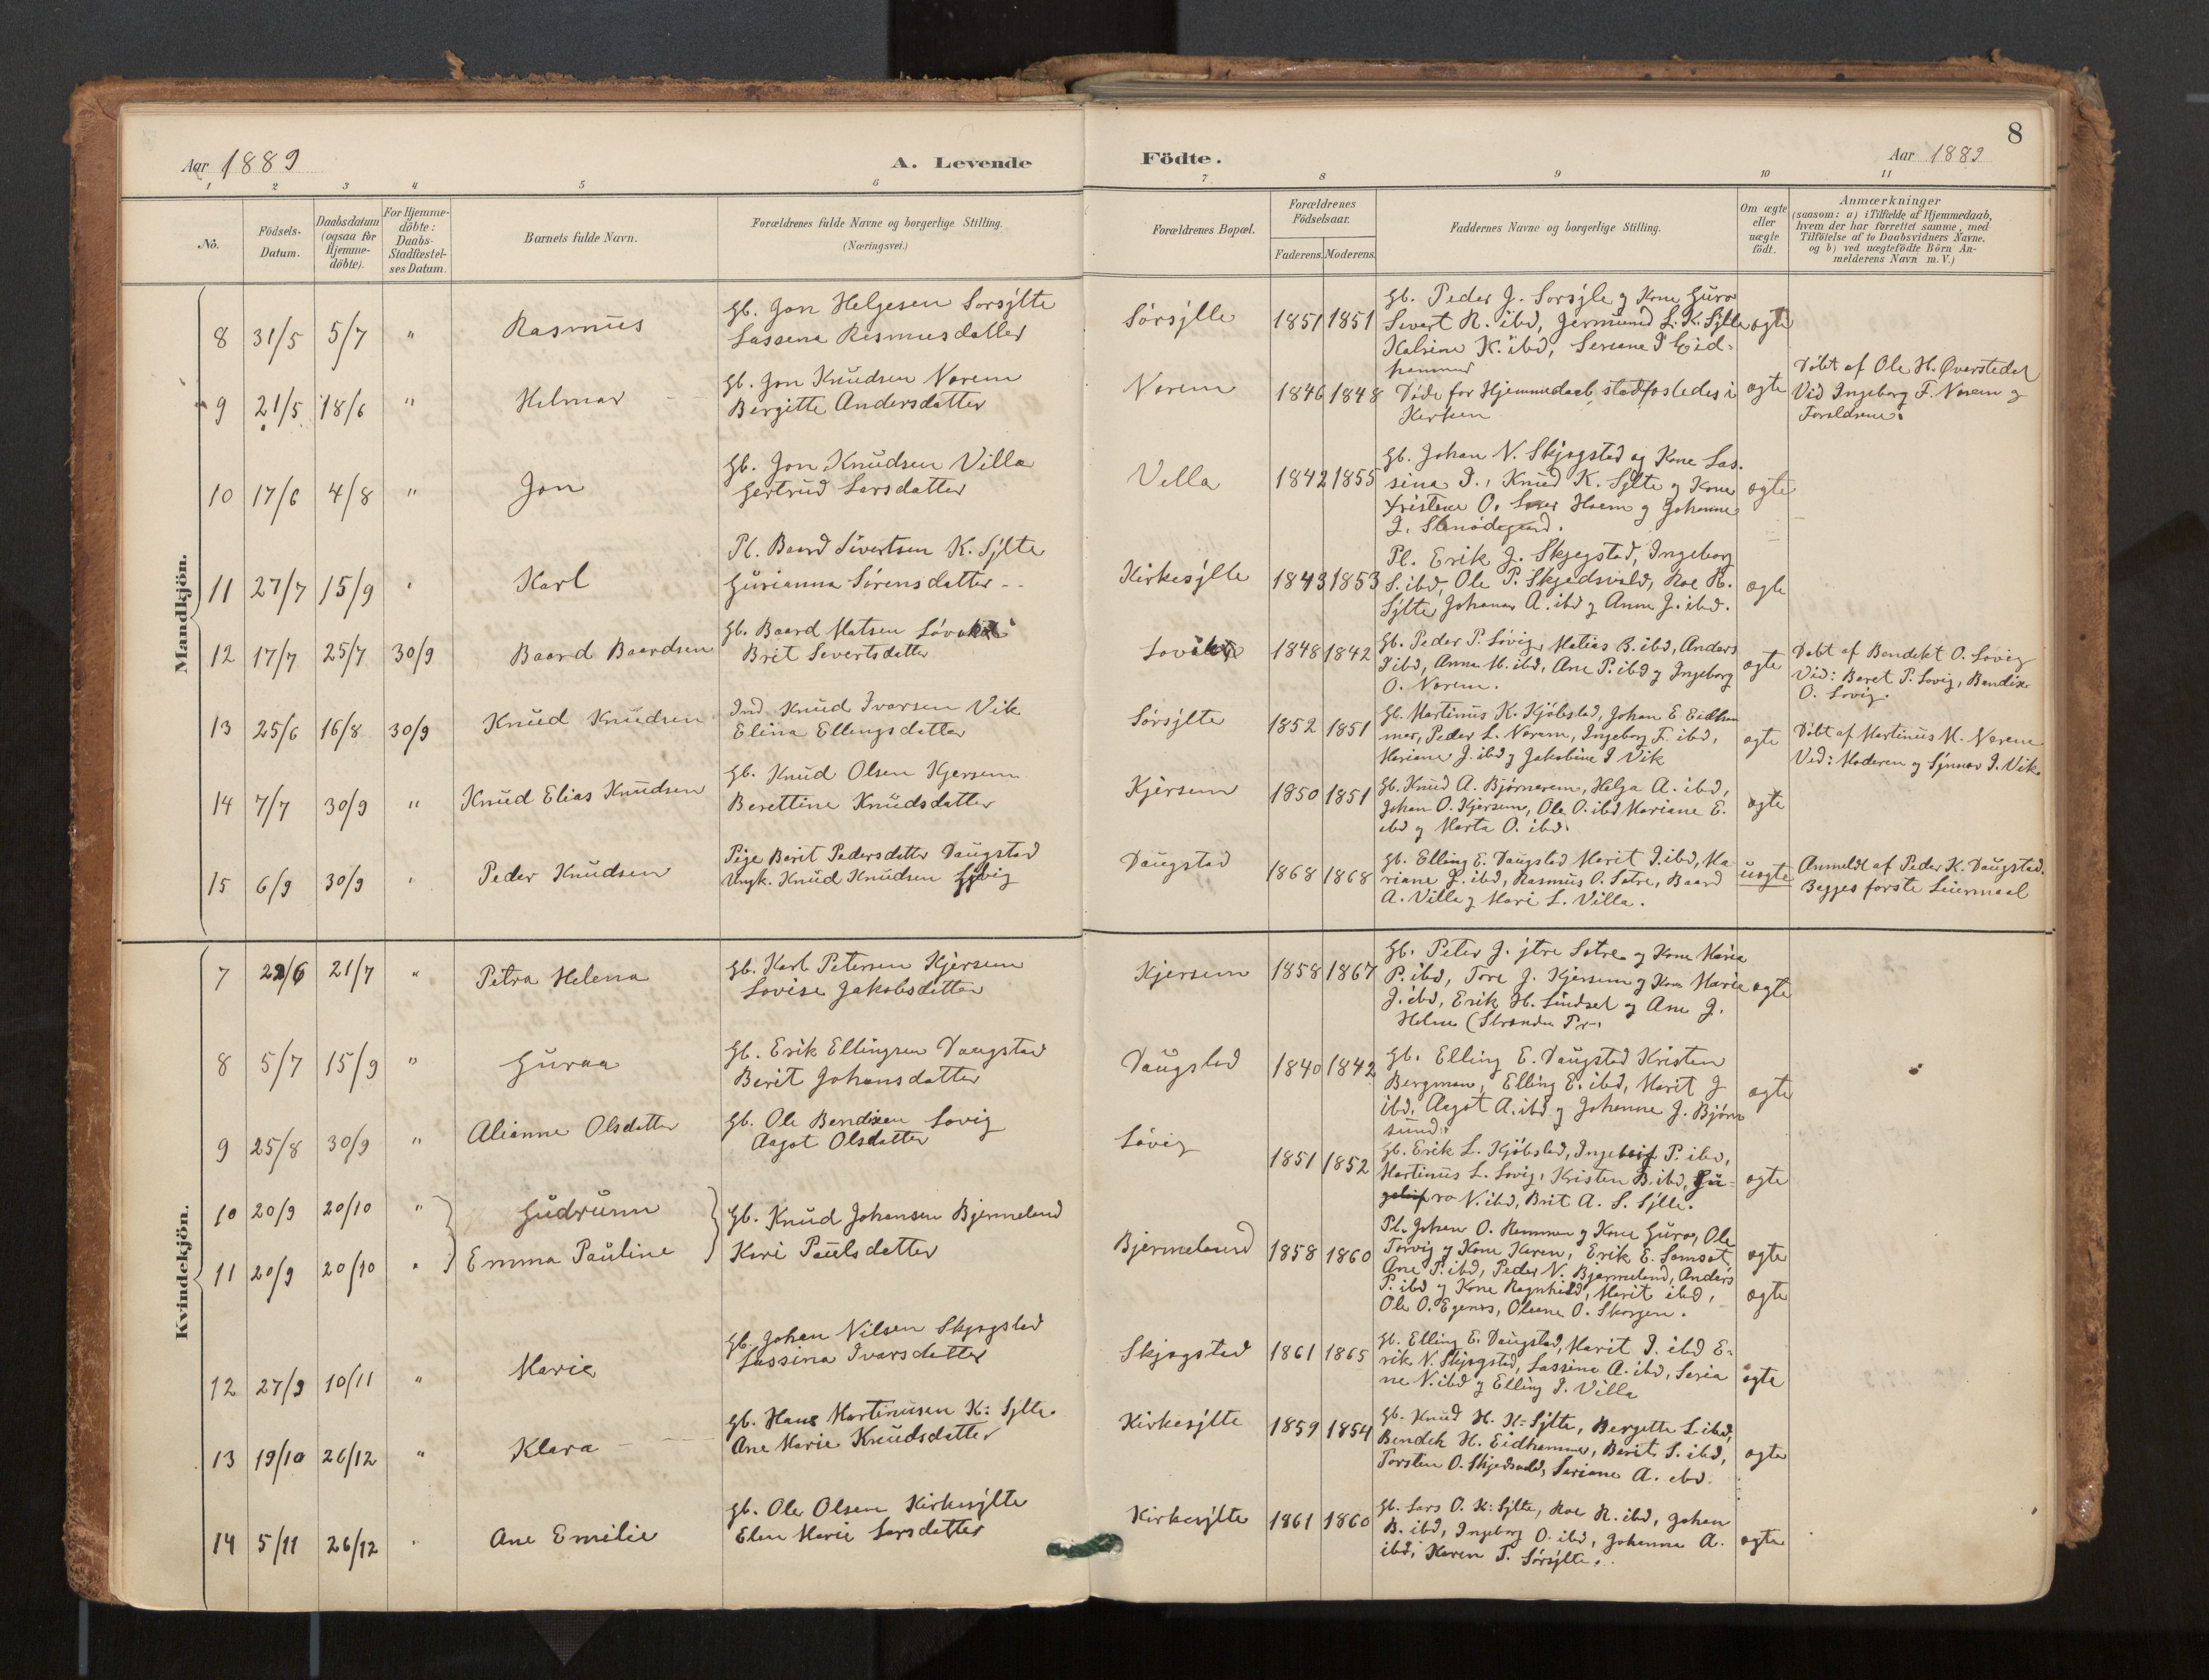 8
Aar 1889
A. Levende
Födte.
Aar 1889
1 2 3 4 5 6 7 8 9 10 11
No.
Födsels-
Datum.
Daabsdatum
(ogsaa for
Hjemme-
döbte).
For Hjemme-
döbte:
Daabs-
Stadfæstel-
ses Datum.
Barnets fulde Navn.
Forældrenes fulde Navne og borgerlige Stilling.
(Næringsvei.)
Forældrenes Bopæl.
Forældrenes
Födselsaar.
Faderens. Moderens.
Faddernes Navne og borgerlige Stilling.
Om ægte
eller
uægte
födt.
Anmærkninger
(saasom: a) i Tilfælde af Hjemmedaab,
hvem der har forrettet samme, med
Tilföielse af to Daabsvidners Navne,
og b) ved uægtefödte Börn An-
melderens Navn m. V.)
Mandkjön.
8 31/5 5/7 " Rasmus
Gb. Jon Helgesen Sorsylte
Lassena Rasmusdatter
Sørsylte 1851 1851
Gb. Peder J. Sorsyle og Kone Guro
Sivert R. ibd, Jermund L. K. Sylte
Katrine K. ibd, Seriane I Eid-
hammer
ægte
9 21/5 18/6 " Helmar
Gb. Jon Knudsen Norem
Bergitte Andersdatter
Norem 1846 1848
Døde for Hjemmedaab stadfæstedes i
Kirken
ægte
Døbt af Ole H. Øverstedal
Vid Ingeborg F. Norem og
Foreldrene.
10 17/6 4/8 " Jon
Gb. Jon Knudsen Villa
Gertrud Larsdatter
Vella 1842 1855
Gb. Johan N. Skjegstad og Kone Las-
sina I., Knud K. Sylte og Kone
Kristene O. Hoem og Johanne
I. Stenødegaard.
ægte
11 27/7 15/9 " Karl
Pl. Baard Sivertsen K. Sylte
Gurianna Sørensdatter
Kirkesylte 1843 1853
Pl. Erik J. Skjegstad, Ingeborg
S. ibd, Ole P. Skjedsvold, Roe R.
Sylte, Johanes A. ibd og Anne J. ibd.
ægte
12 17/7 25/7 30/9 Baard Baardsen
Gb. Baard Matsen
Brit Severtsdatter
1848 1842
Gb. Peder P. Løvig, Matias B. ibd, Anders
I ibd, Anna M. ibd, Ane P. ibd og Ingeborg
O. Norem.
ægte
Døbt af Bendikt O. Lovig
Vid: Beret P. Lovig, Bendix
O. Lovig.
13 25/6 16/8 30/9 Knud Knudsen
Ind. Knud Ivarsen Vik
Elina Ellingsdatter
Sørsylte 1852 1851
Gb. Martinus K. Kjøbstad, Johan E. Eidham
mer, Peder L. Norem, Ingeborg F. ibd,
Mariane J. ibd og Jakobine I Vik
ægte
Døbt af Martinus M. Norem
Vid: Moderen og Synnøv I. Vik.
14 7/7 30/9 " Knud Elias Knudsen
Gb. Knud Olsen Kjersem
Berettine Knudsdatter
Kjersem 1850 1851
Gb. Knud A. Bjørnerem, Helga A. ibd,
Johan O. Kjersem, Ole O. ibd Mariane E.
ibd og Marta O. ibd.
ægte
15 6/9 30/9 " Peder Knudsen
Pige Berit Pedersdatter Daugstad
Ungk. Knud Knudsen
Daugstad 1868 1868
Gb. Elling E. Daugstad Marit I. ibd, Ma-
riane J. ibd, Rasmus O. Sotre, Baard
A. Villa og Mari L. Villa.
uægte
Anmeldt af Peder K. Daugstad.
Begges første Leiermaal
Kvindekjön.
7 22/6 21/7 " Petra Helena
Gb. Karl Petersen Kjersem
Lovise Jakobsdatter
Kjersem 1858 1867
Gb. Peter J. ytre Sotre og Kone Maria
P. ibd, Tore J. Kjersem og Kone Marie
J. ibd, Erik H. Lindset og Ane J.
Helme (Stranden Pr.
ægte
8 5/7 15/9 " Guraa
Gb. Erik Ellingsen Daugstad
Berit Johansdatter
Daugstad 1840 1842
Gb. Elling E. Daugstad Kristen
Bergman, Elling E. ibd, Marit J
ibd. Aagot A. ibd og Johanne J. Bjørn
sund.
ægte
9 25/8 30/9 " Alianne Olsdatter
Gb. Ole Bendixen Lovig
Aagot Olsdatter
Løvig 1851 1852
Gb. Erik L. Kjøbstad, P. ibd,
Martinus L. Lovig, Kristen B. ibd, Gu-
ro N. ibd, Brit A. S. Sylte.
ægte
10 20/9 20/10 " Gudrunn
11 20/9 20/10 " Emma Pauline
Gb. Knud Johansen Bjermeland
Kari Paulsdatter
Bjermeland 1858 1860
Pl. Johan O. Hammer og Kone Guro, Ole
Torvig og Kone Karen, Erik E. Samset,
Ane P. ibd, Peder N. Bjermeland, Anders
P. ibd og Kone Ragnhild, Marit ibd,
Ole O. Egenes, Oleane O. Skorgen.
ægte
ægte
12 27/9 10/11 " Marie
Gb. Johan Nilsen Skjegstad
Lassina Ivarsdatter
Skjegstad 1861 1865
Gb. Elling E. Daugstad, Marit I. ibd E-
rik N. Skjegstad, Lassine A. ibd, Seria
ne N. ibd og Elling I. Villa
ægte
13 19/10 26/12 " Klara
Gb. Hans Martinusen K: Sylte
Ane Marie Knudsdatter
Kirkesylte 1859 1854
Gb. Knud H. K: Sylte, Bergette L. ibd,
Bendik H. Eidhammer, Berit S. ibd,
Torsten O. Skjedsvold, Seriane A. ibd.
ægte
14 5/11 26/12 " Ane Emilie
Gb. Ole Olsen Kirkesylte
Elen Marie Larsdatter
Kirkesylte 1861 1860
Gb. Lars O. K: Sylte, Roe R. ibd, Johan
B. ibd, Ingeborg O. ibd, Johanna A.
ibd, Karen T. Sørsylte.
ægte